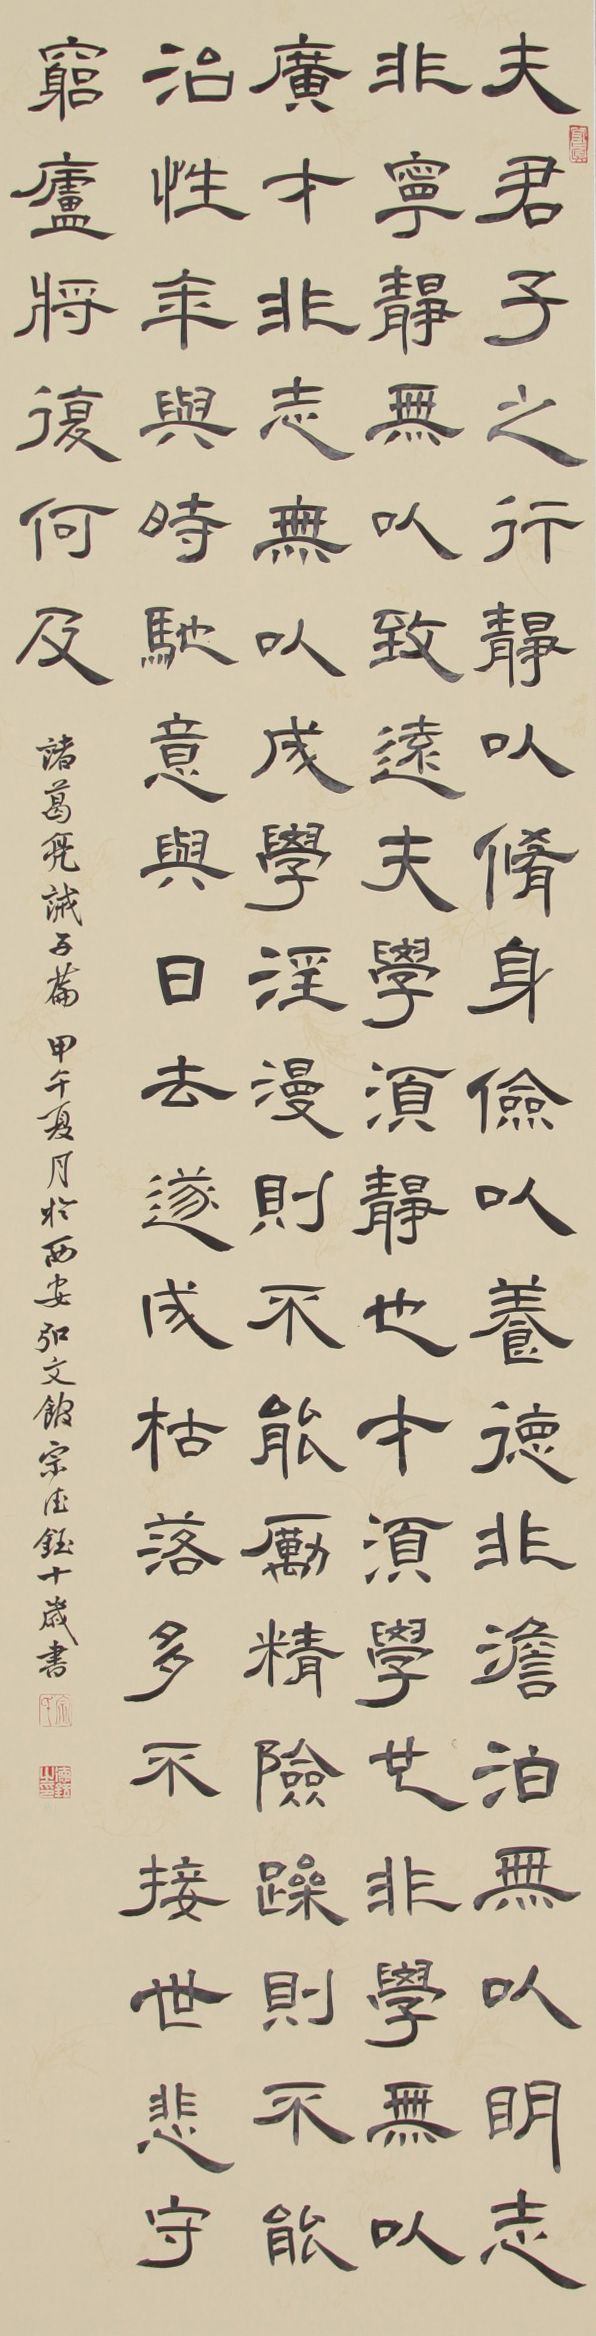 夫君子之行靜以脩身儉以養德非澹泊無以明志
非寧靜無以致遠夫學須靜也才須學也非學無以
廣才非志無以成學淫漫則不能勵精險躁則不能
治性年與時馳意與日去遂成枯落多不接世悲守
窮廬將復何及
諸葛亮誡子篇 甲午夏月於西安弘文館宗德鈺十歲書